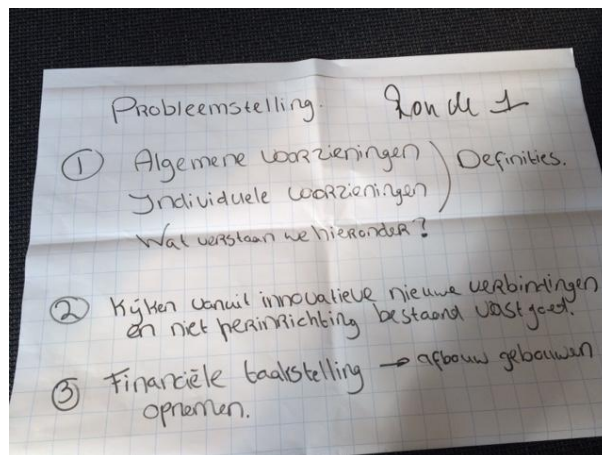 Probleemstelling. Ronde 1
① Algemene voorzieningen ) Definities.
Individuele voorzieningen
Wat verstaan we hieronder?
② Kijken vanuit innovatieve nieuwe verbindingen
en niet herinrichting bestaand vastgoed.
③ Financiële taakstelling → afbouw gebouwen
opnemen.